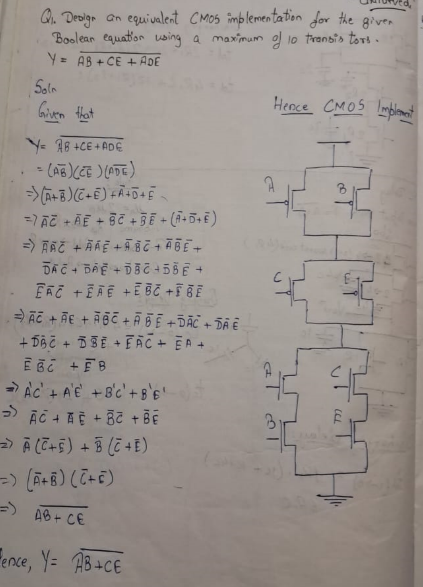 Q1. Design an equivalent CMOS implementation for the given
Boolean equation using a maximum of 10 transistors.
Y = \overline{AB + CE + ADE}
Soln
Given that
Y = \overline{AB + CE + ADE}
= (\overline{AB}) (\overline{CE}) (\overline{ADE})
=> (Ā+B̄)(C̄+Ē)+Ā+D̄+Ē
=> ĀC̄ + ĀĒ + B̄C̄ + B̄Ē + (Ā+D̄+Ē)
=> ĀĀC̄ + ĀĀĒ + ĀB̄C̄ + ĀB̄Ē +
D̄ĀC̄ + D̄ĀĒ + D̄B̄C̄ + D̄B̄Ē +
ĒĀC̄ + ĒĀĒ + ĒB̄C̄ + ĒB̄Ē
=> ĀC̄ + ĀĒ + ĀB̄C̄ + ĀB̄Ē + D̄ĀC̄ + D̄ĀĒ
+ D̄B̄C̄ + D̄B̄Ē + ĒĀC̄ + ĒA +
ĒB̄C̄ + ĒB
=> A'C' + A'E' + B'C' + B'E'
=> ĀC̄ + ĀĒ + B̄C̄ + B̄Ē
=> Ā (C̄+Ē) + B̄ (C̄+Ē)
=> (Ā+B̄) (C̄+Ē)
=> \overline{AB + CE}
Hence, Y = \overline{AB + CE}
Hence CMOS Implement
A
B
C
E
A
C
B
E